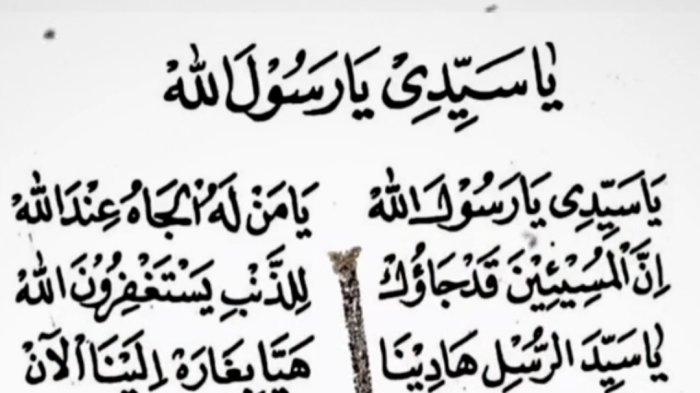 يَا سَيِّدِيْ يَا رَسُوْلَ اللهْ
يَا سَيِّدِي يَا رَسُوْلَ اللهْ يَا مَنْ لَهُ الْجَاهُ عِنْدَ اللهْ
اِنَّ الْمُسِيْئِيْنَ قَدْ جَاؤُكْ لِلذَّنْبِ يَسْتَغْفِرُوْنَ اللهْ
يَا سَيِّدَ الرُّسْلِ هَادِيْنَا هَيَّا بِغَارَهْ اِلَيْنَا الْآنْ